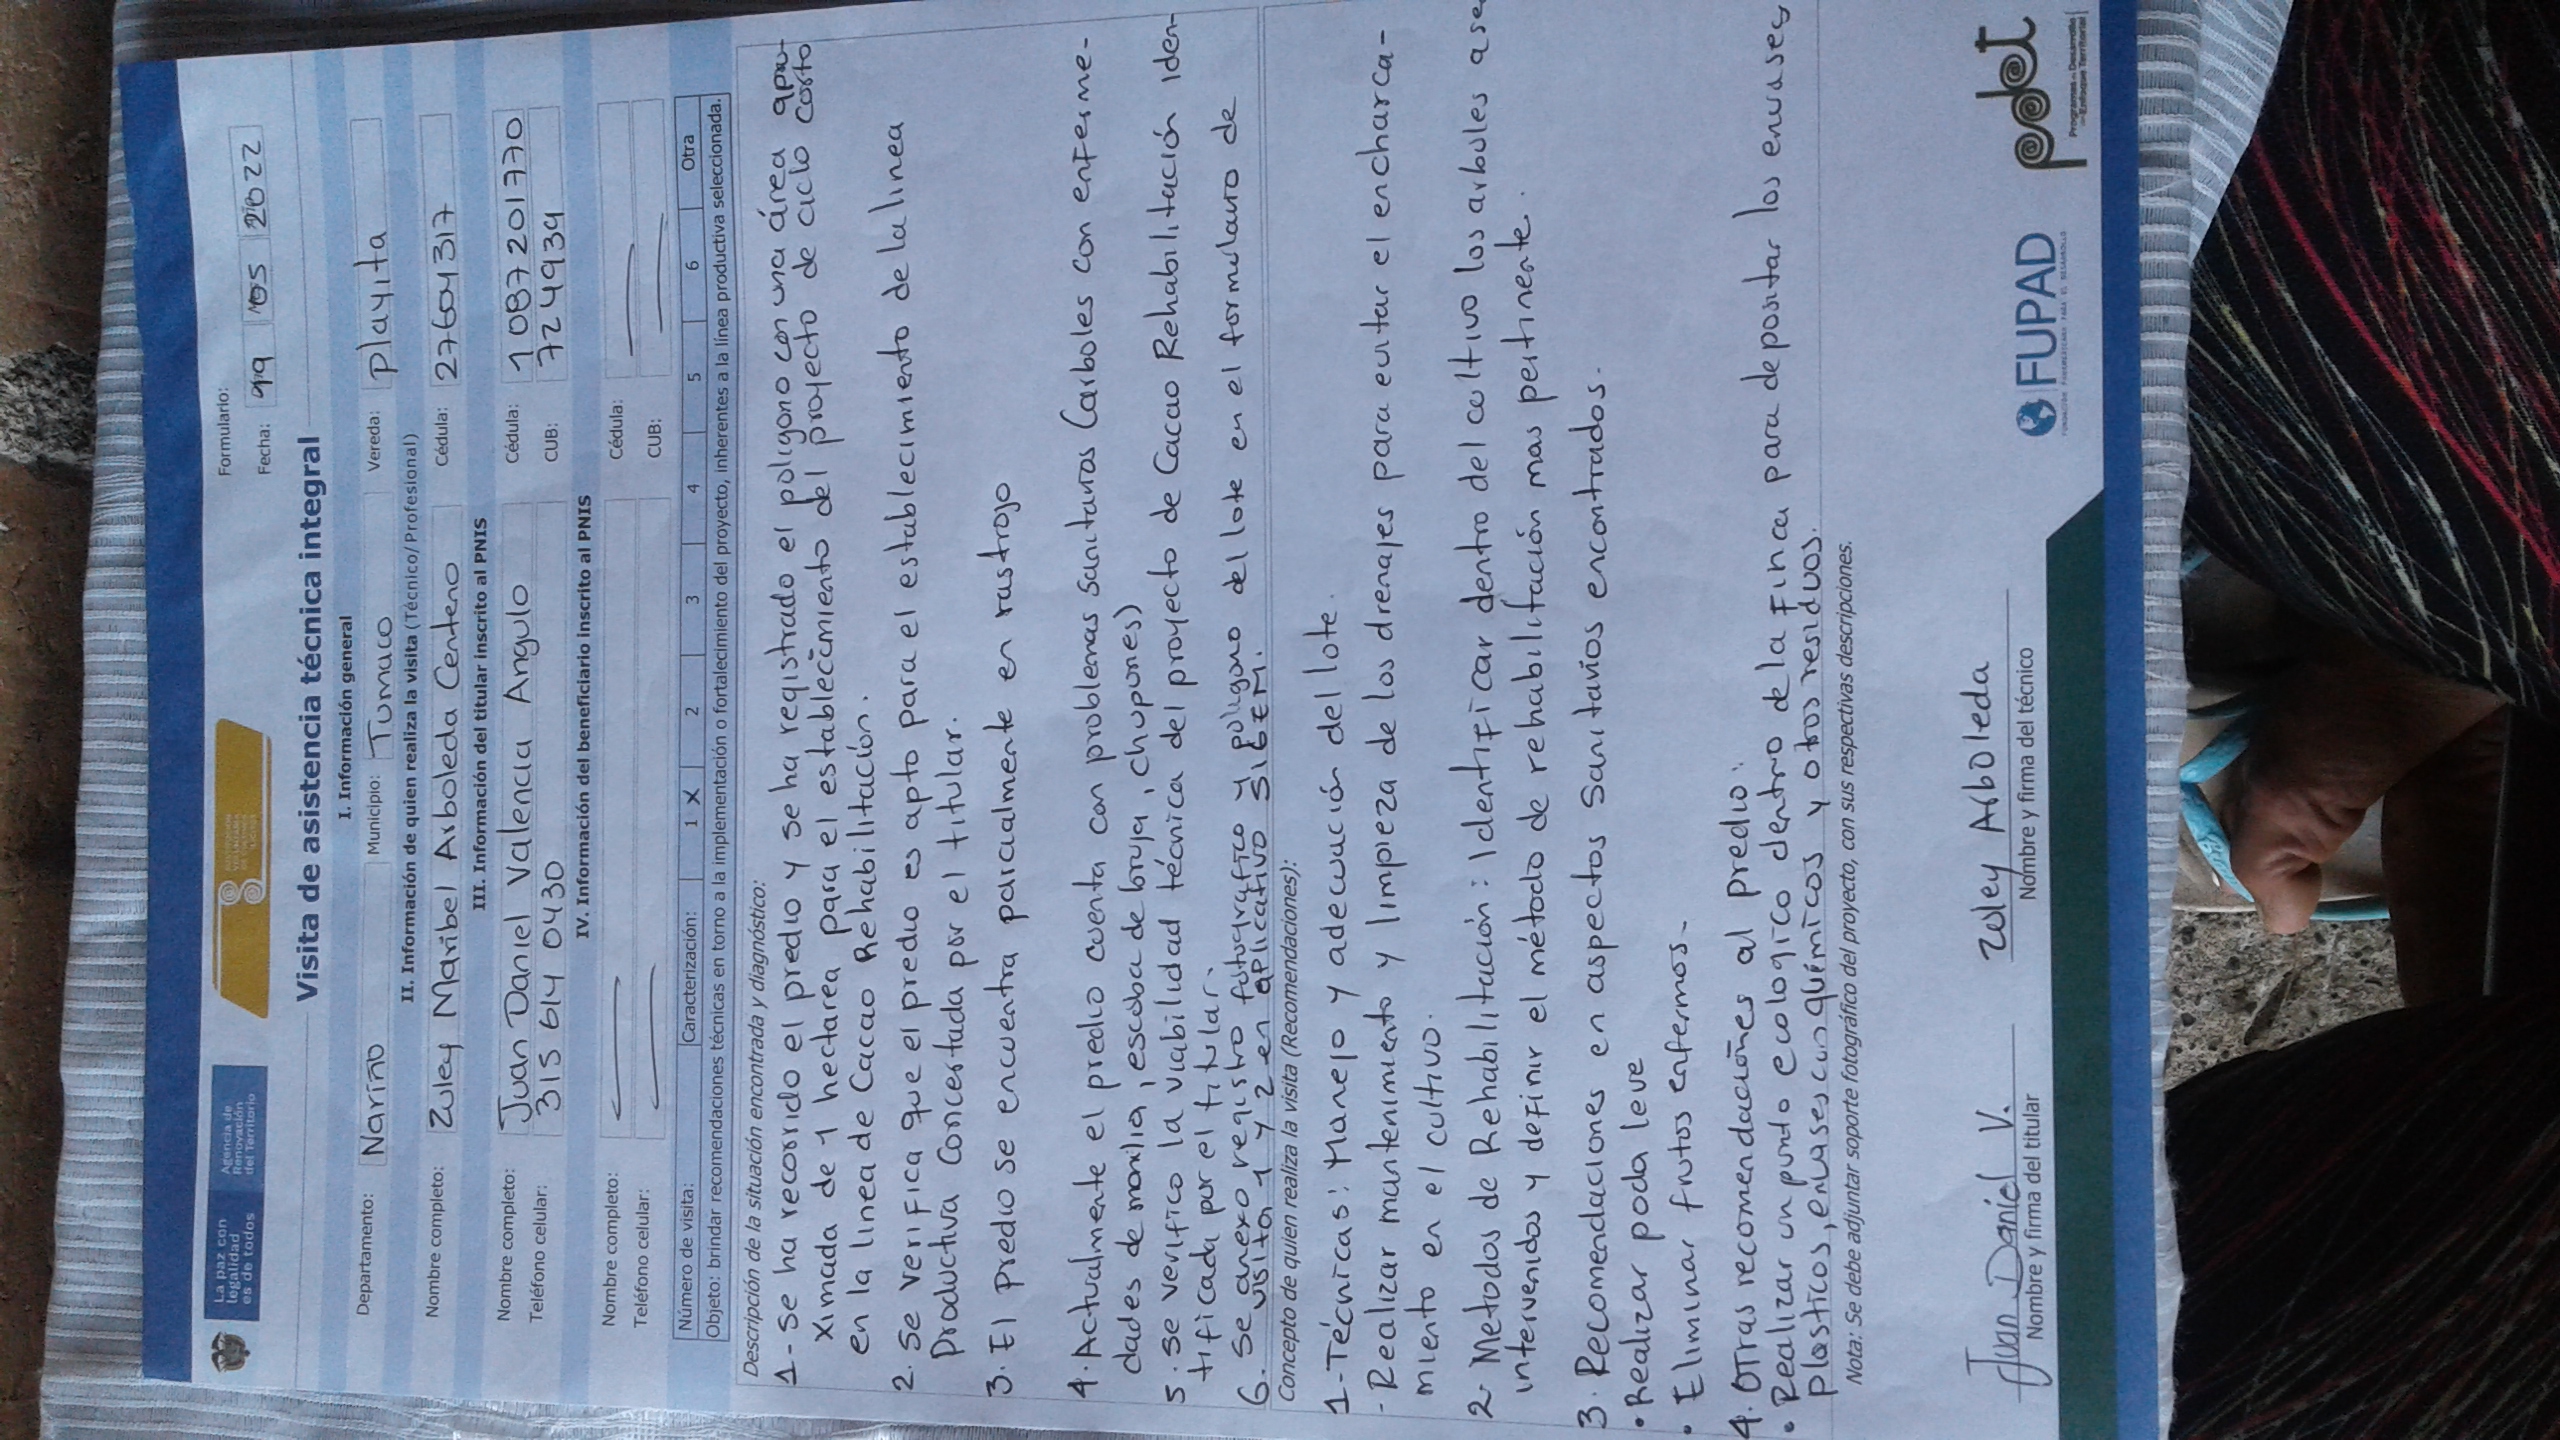 La paz con
legalidad
es de todos
Agencia de
Renovación
del Territorio
Formulario:
Fecha: 05 2022
Visita de asistencia técnica integral
I. Información general
Departamento: Nariño Municipio: Tumaco Vereda: playita
II. Información de quien realiza la visita (Técnico/Profesional)
Nombre completo: Zuley Maribel Arboleda Centeno Cédula: 27604317
III. Información del titular inscrito al PNIS
Nombre completo: Juan Daniel Valencia Angulo Cédula: 1087201770
Teléfono celular: 315 614 0430 CUB: 7249934
IV. Información del beneficiario inscrito al PNIS
Nombre completo: Cédula:
Teléfono celular: CUB:
Número de visita: Caracterización: 1 X 2 3 4 5 6 Otra
Objeto: brindar recomendaciones técnicas en torno a la implementación o fortalecimiento del proyecto, inherentes a la línea productiva seleccionada.
Descripción de la situación encontrada y diagnóstico:
1- Se ha recorrido el predio y se ha registrado el poligono con una área apro-
ximada de 1 hectarea para el establecimiento del proyecto de ciclo corto
en la linea de Cacao Rehabilitación.
2. Se verifica que el predio es apto para el establecimiento de la linea
productiva concertada por el titular.
3. El predio se encuentra parcialmente en rastrojo
4. Actualmente el predio cuenta con problemas sanitarios (arboles con enferme-
dades de monilia, escoba de bruja, chupones)
5. se verifico la viabilidad técnica del proyecto de Cacao Rehabilitación iden-
tificada por el titular.
6. Se anexo registro fotografico y poligono del lote en el formulario de
visita 1 y 2 en aplicativo SIGEM.
Concepto de quien realiza la visita (Recomendaciones):
1- Técnicas: Manejo y adecuación del lote.
- Realizar mantenimiento y limpieza de los drenajes para evitar el encharca-
miento en el cultivo.
2- Metodos de Rehabilitación: identificar dentro del cultivo los arboles a ser
intervenidos y definir el método de rehabilitación mas pertinente.
3. Recomendaciones en aspectos Sanitarios encontrados.
• Realizar poda leve
• Eliminar frutos enfermos.
4. Otras recomendaciones al predio:
• Realizar un punto ecologico dentro de la finca para depositar los envases
plasticos, envases con químicos y otros residuos.
Nota: Se debe adjuntar soporte fotográfico del proyecto, con sus respectivas descripciones.
Juan Daniel V.
Nombre y firma del titular
Zuley Arboleda
Nombre y firma del técnico
FUPAD
pdet
Programas de Desarrollo
con Enfoque Territorial